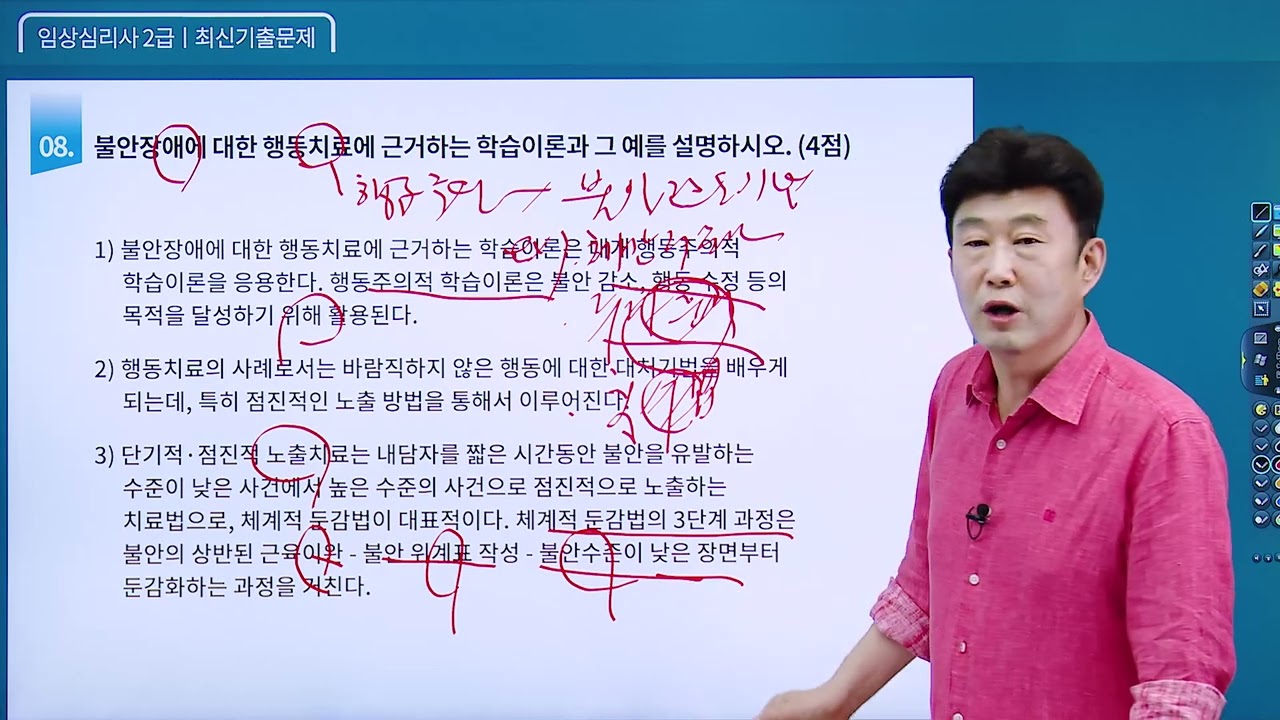 임상심리사 2급 | 최신기출문제
08. 불안장애에 대한 행동치료에 근거하는 학습이론과 그 예를 설명하시오. (4점)
1) 불안장애에 대한 행동치료에 근거하는 학습이론은 매개 행동주의적
학습이론을 응용한다. 행동주의적 학습이론은 불안 감소, 행동 수정 등의
목적을 달성하기 위해 활용된다.
2) 행동치료의 사례로서는 바람직하지 않은 행동에 대한 대처기법을 배우게
되는데, 특히 점진적인 노출 방법을 통해서 이루어진다.
3) 단기적·점진적 노출치료는 내담자를 짧은 시간동안 불안을 유발하는
수준이 낮은 사건에서 높은 수준의 사건으로 점진적으로 노출하는
치료법으로, 체계적 둔감법이 대표적이다. 체계적 둔감법의 3단계 과정은
불안의 상반된 근육이완 - 불안 위계표 작성 - 불안수준이 낮은 장면부터
둔감화하는 과정을 거친다.